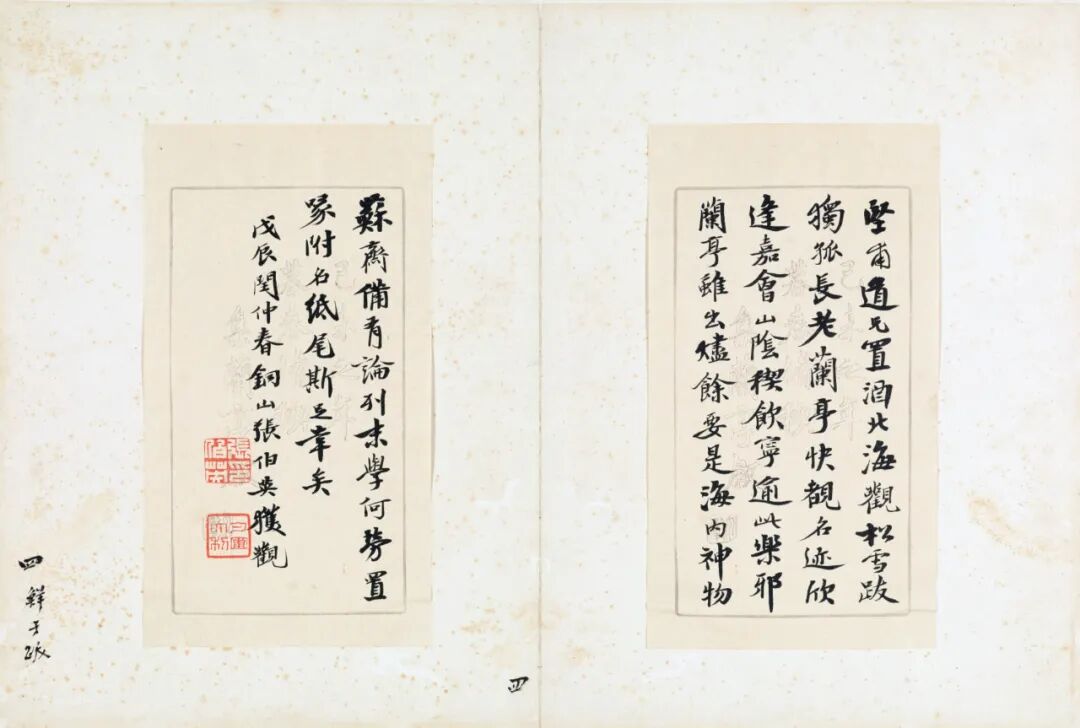 堅甫道兄置酒北海觀松雪跋
獨孤長老蘭亭快覩名迹欣
逢嘉會山陰禊飲寧逾此樂邪
蘭亭雖出燼餘要是海内神物
蘇齋備有論列末學何勞置
喙附名紙尾斯足幸矣
戊辰閏仲春銅山張伯英獲觀
張伯英
四
四 鮮于跋